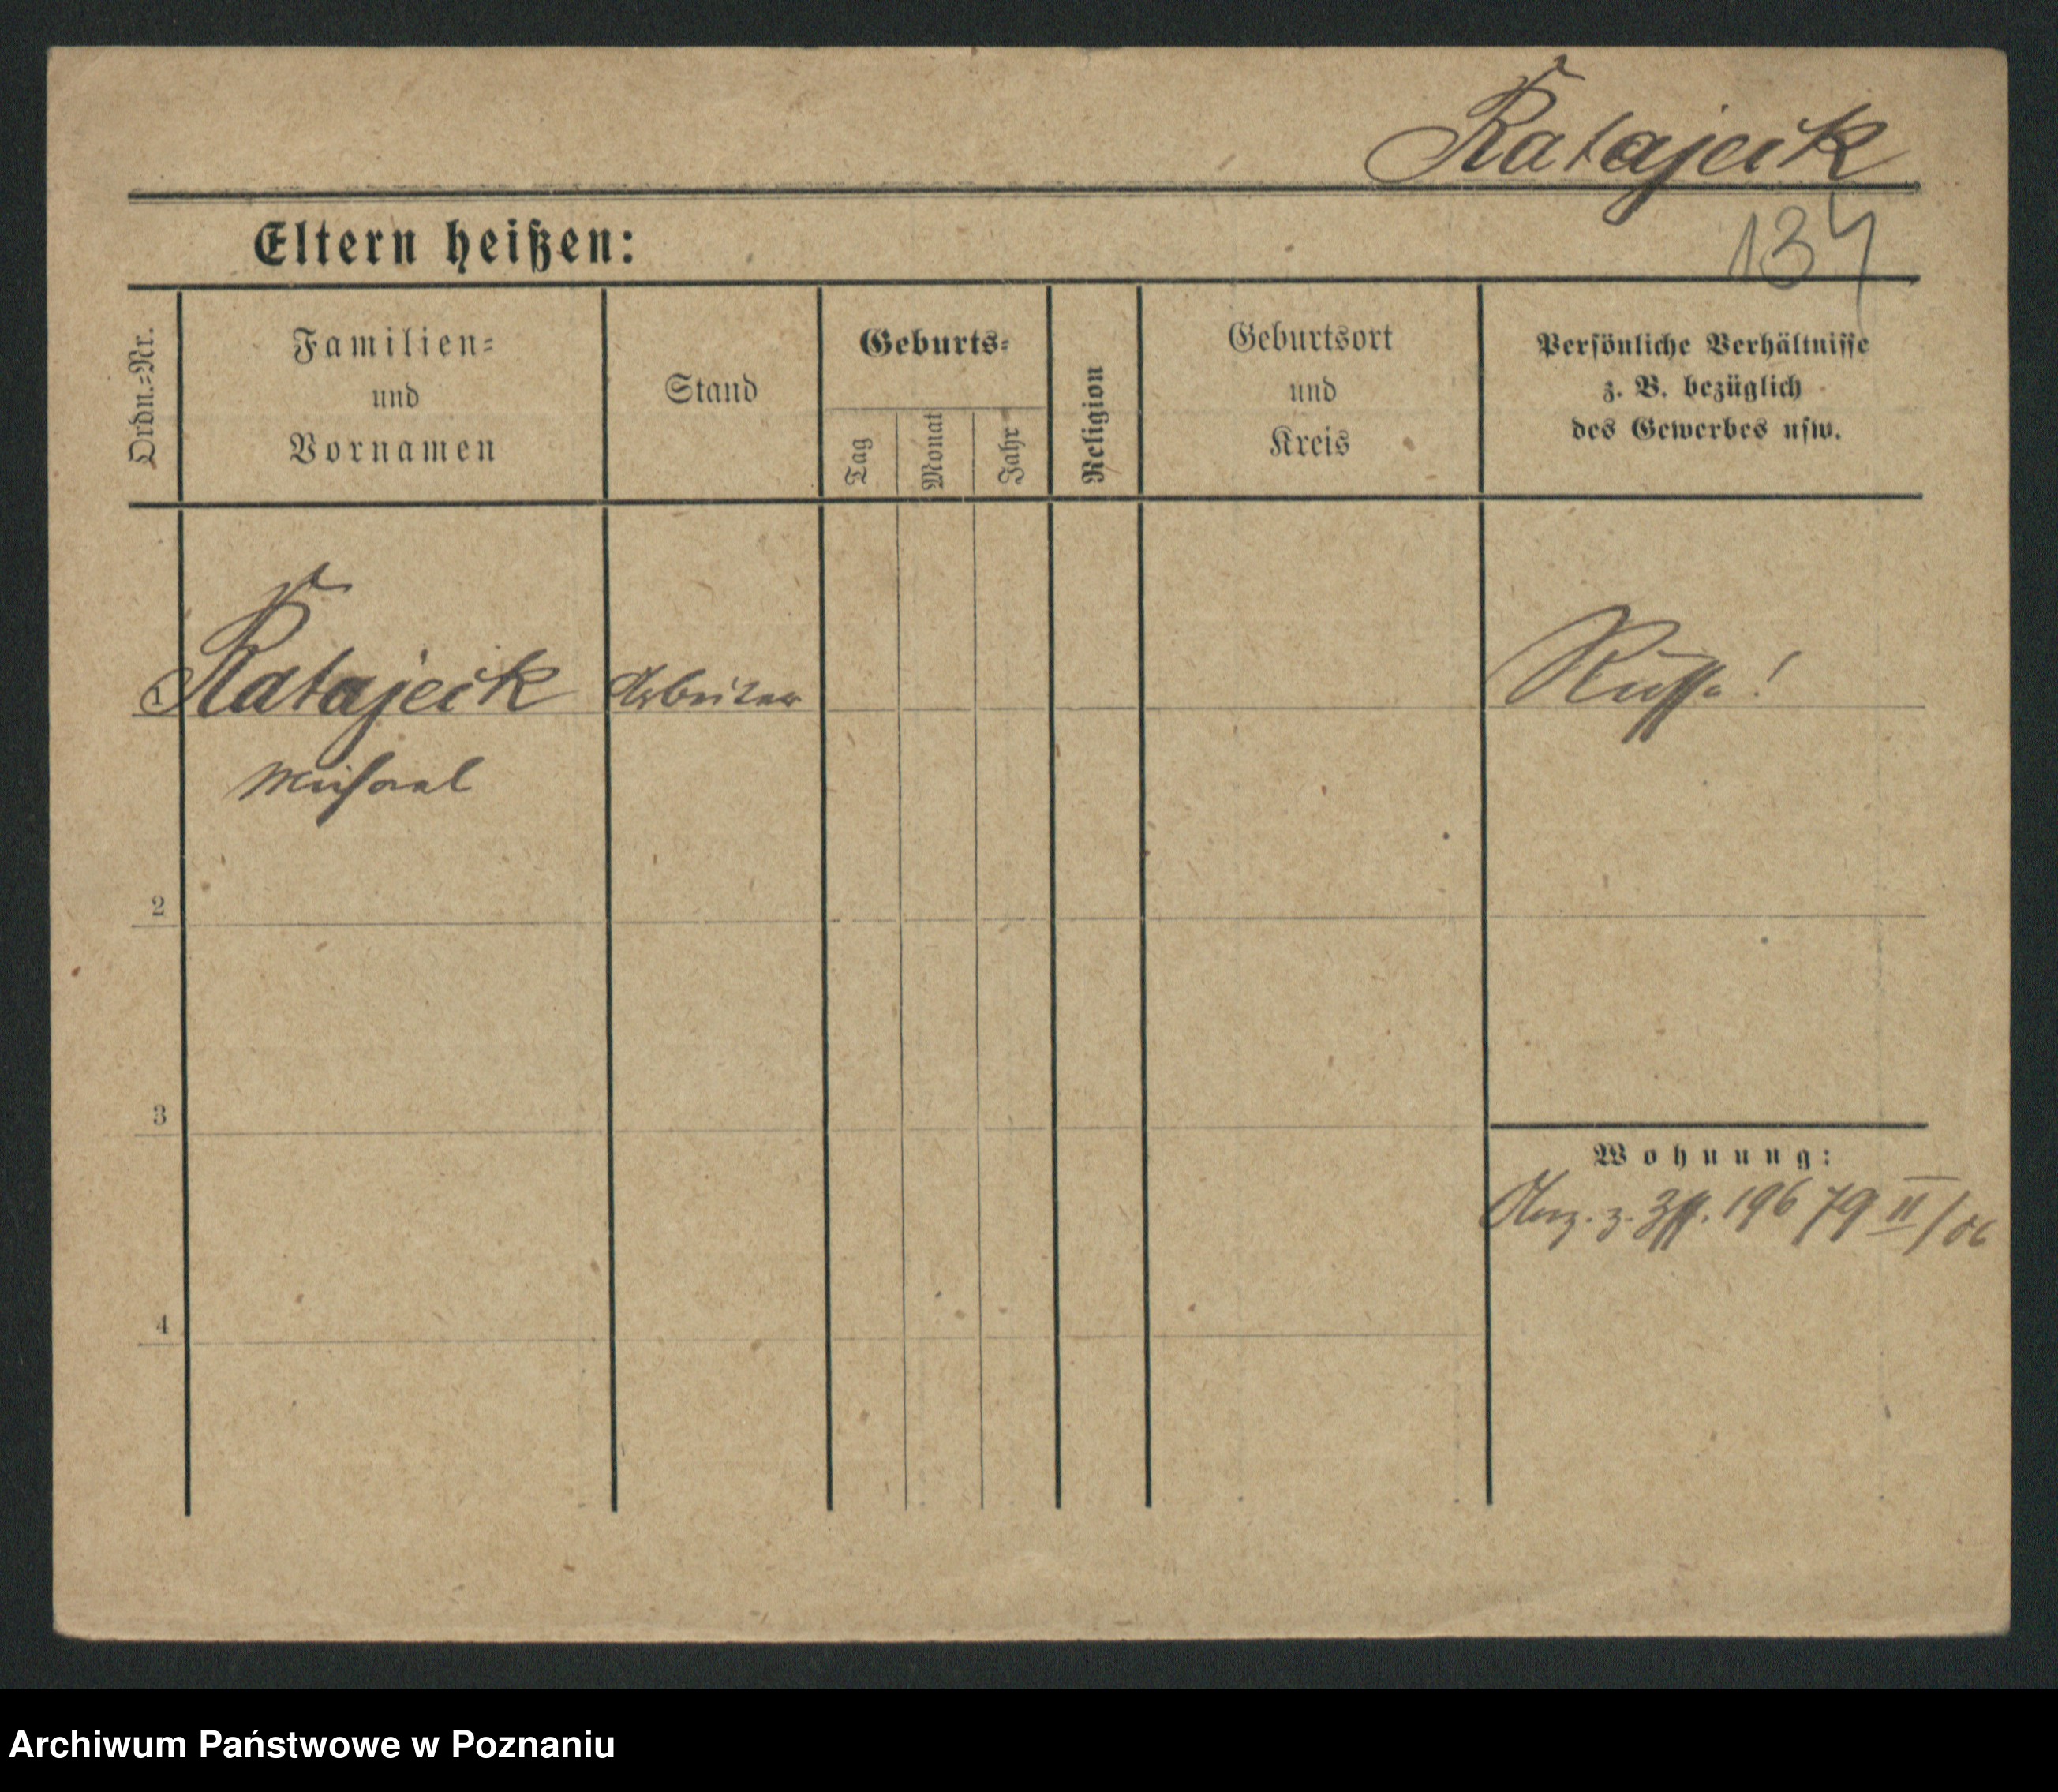 Ratajcik
134
Eltern heißen:
Ordn.=Nr.
Familien=
und
Vornamen
Stand
Geburts=
Tag
Monat
Jahr
Religion
Geburtsort
und
Kreis
Persönliche Verhältnisse
z. B. bezüglich
des Gewerbes usw.
1 Ratajcik Arbeiter Russe!
Michael
2
3
Wohnung:
z. 196 79 II/06
4
Archiwum Państwowe w Poznaniu